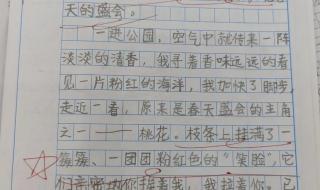 天的盛会。
一进公园，空气中就传来一阵
淡淡的清香，我寻着香味远远的看
见一片粉红的海洋，我加快了脚步
走近一看，原来是春天盛会的主角
之一——桃花。枝条上挂满了一
簇簇、一团团粉红色的“笑脸”，它
们亲密的你挨着我，我挨着你。